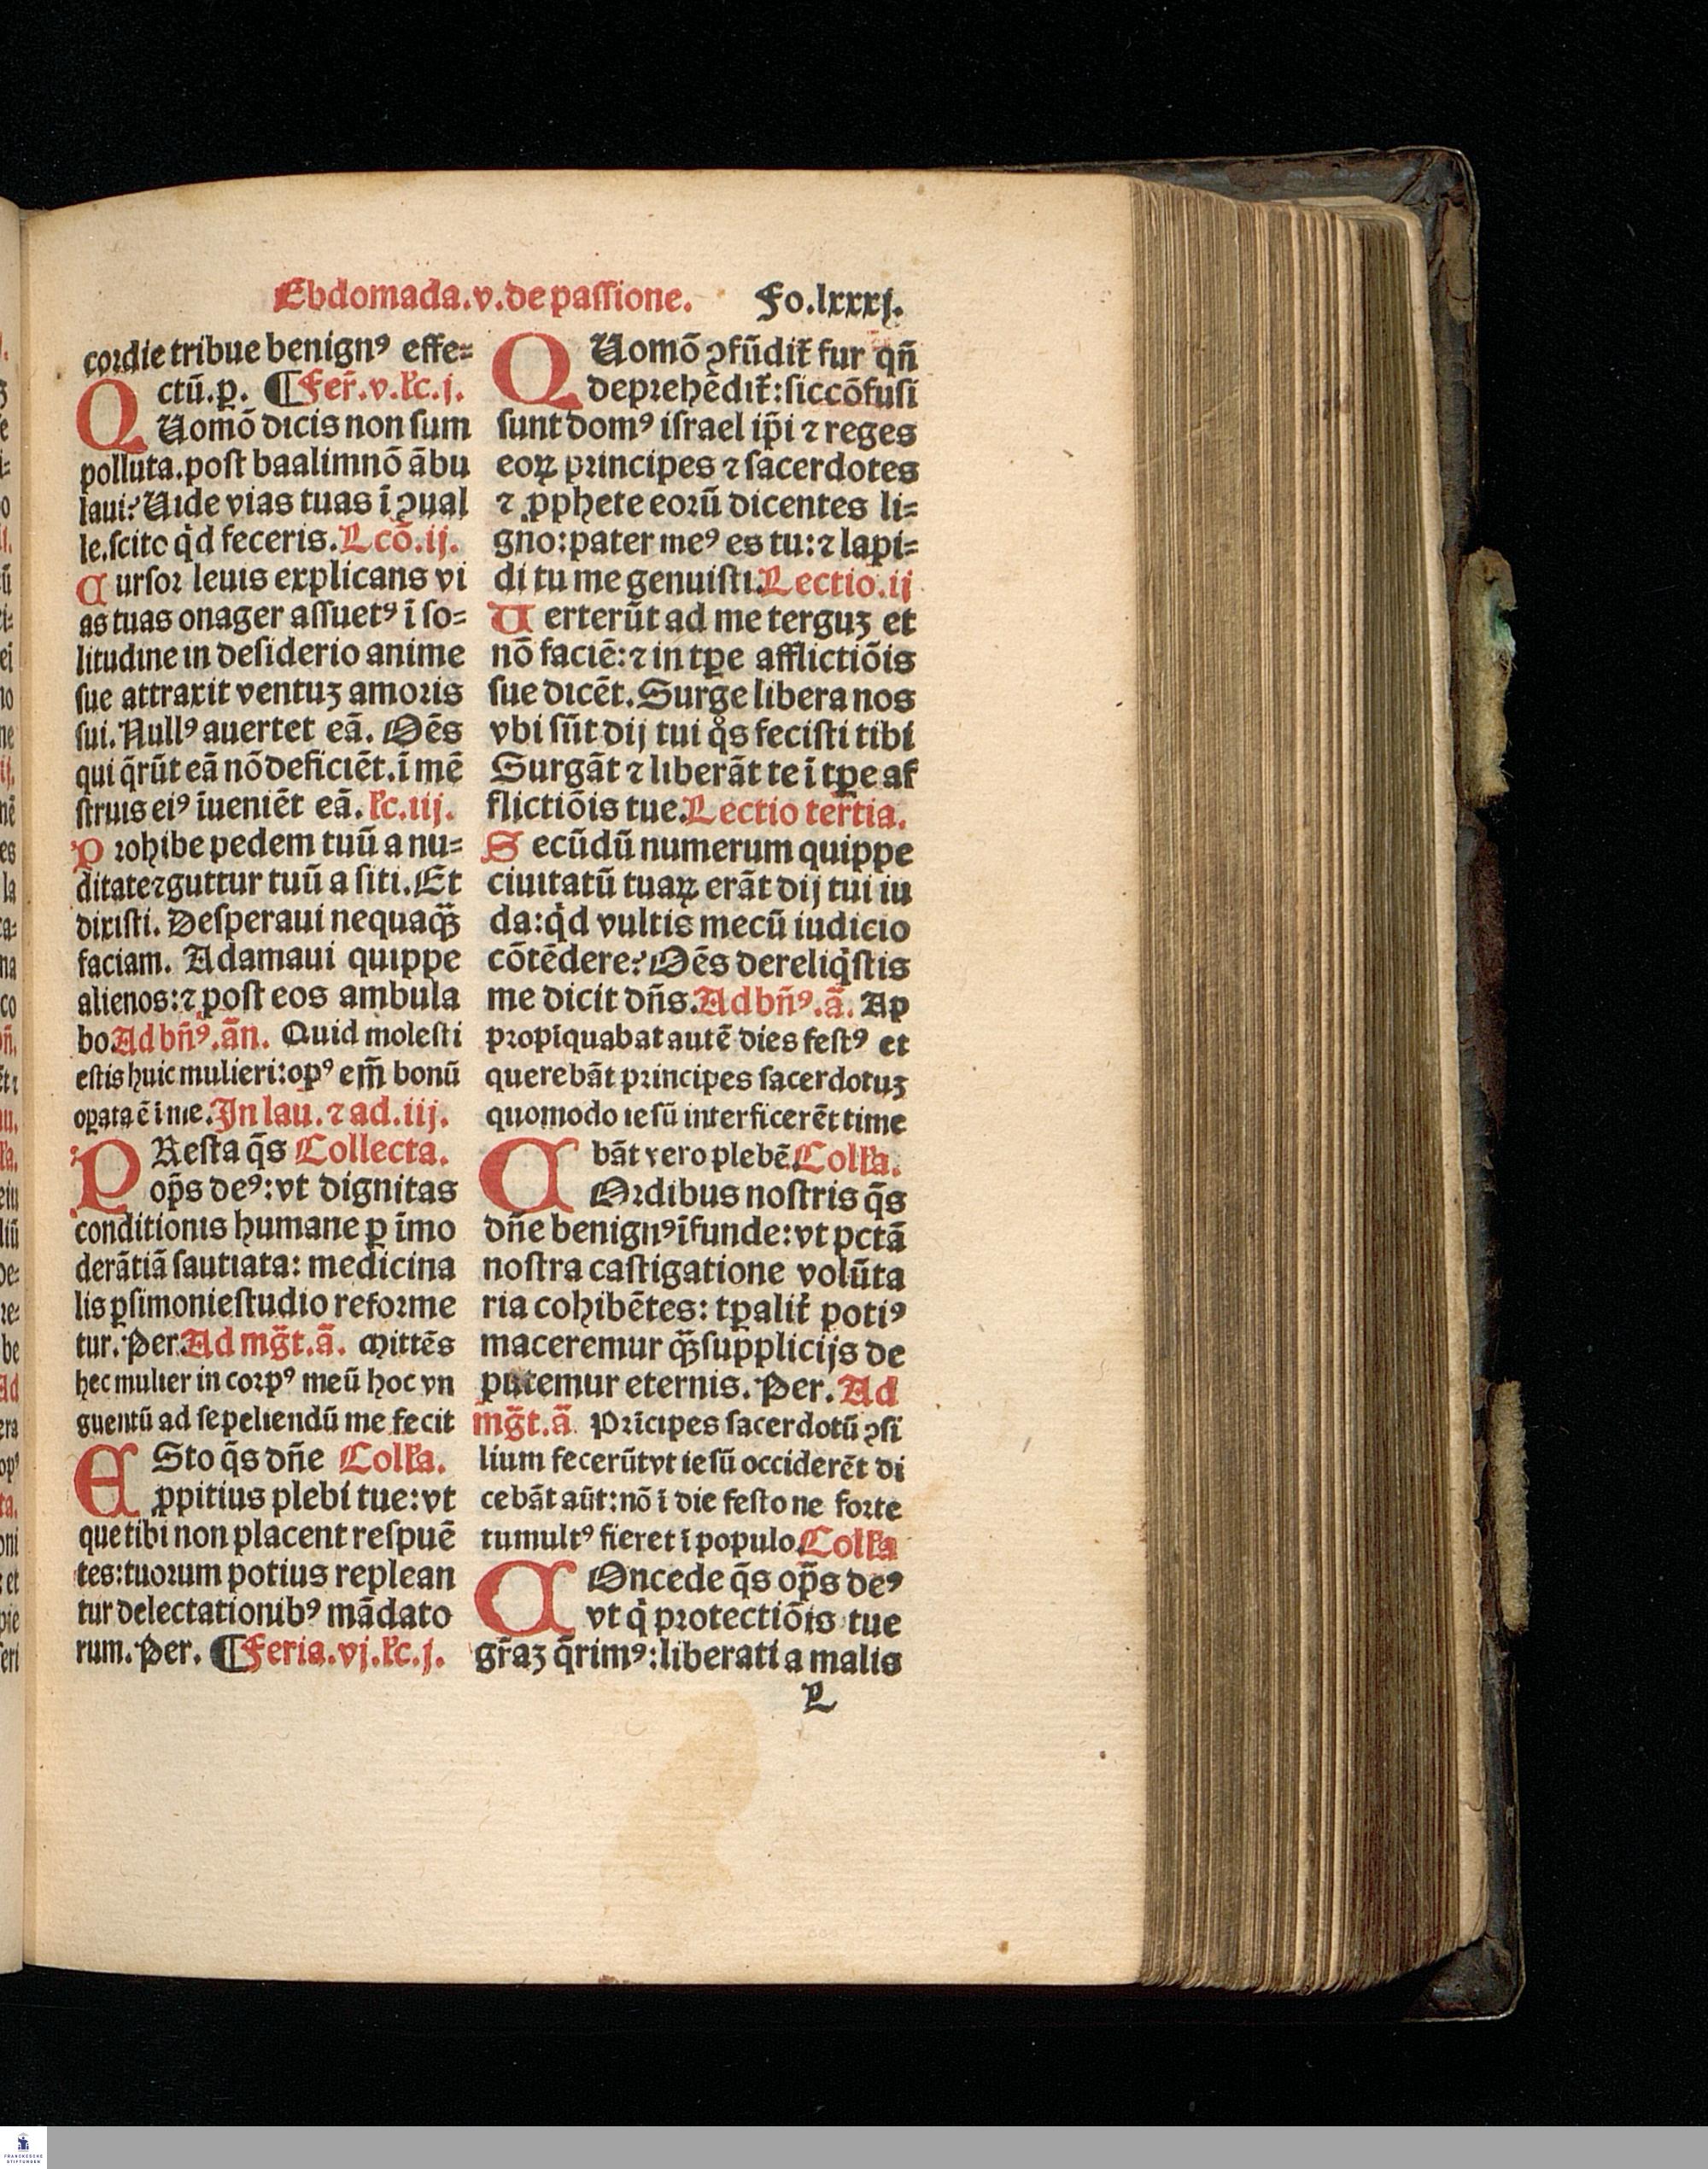 Ebdomada.v.de passione. Fo.lxxxj.
cordie tribue benignꝰ effe⸗
ctū.ꝑ. ¶Fer̄.v.lc̄.j.
QUomō dicis non sum
polluta.post baalim nō ābu
laui? Uide vias tuas ī ꝯual
le.scito qd̄ feceris. Lcō.ij.
Cursor leuis explicans vi
as tuas onager assuetꝰ ī so⸗
litudine in desiderio anime
sue attraxit ventuꝫ amoris
sui. Nullꝰ auertet eā. Oēs
qui q̄rūt eā nō deficiēt.ī mē
struis eiꝰ īueniēt eā. lc̄.iij.
Prohibe pedem tuū a nu⸗
ditate⁊guttur tuū a siti. Et
dixisti. Desperaui nequaqꝫ̄
faciam. Adamaui quippe
alienos:⁊ post eos ambula
bo. Ad bn̄ꝰ.ān. Quid molesti
estis huic mulieri:opꝰ em̄ bonū
oꝑata ē ī me. In lau. ⁊ ad.iij.
PResta q̄s Collecta.
op̄s deꝰ:vt dignitas
conditionis humane ꝑ īmo
derātiā sautiata: medicina
lis ꝑsimonie studio reforme
tur. Per. Ad mḡt.ā. Mittēs
hec mulier in corpꝰ meū hoc vn
guentū ad sepeliendū me fecit
ESto q̄s dn̄e Coll̄a.
ꝓpitius plebi tue:vt
que tibi non placent respuē
tes:tuorum potius replean
tur delectationibꝰ mādato
rum. Per. ¶Feria.vj.lc̄.j.
QUomō ꝯfūdit̄ fur qn̄
deprehēdit̄:sic cōfusi
sunt domꝰ israel ip̄i ⁊ reges
eoꝝ principes ⁊ sacerdotes
⁊ ꝓphete eorū dicentes li⸗
gno:pater meꝰ es tu:⁊ lapi⸗
di tu me genuisti. Lectio.ij
Uerterūt ad me terguꝫ et
nō faciē:⁊ in tꝑe afflictiōis
sue dicēt. Surge libera nos
vbi sūt dij tui qͦs fecisti tibi
Surgāt ⁊ liberāt te ī tꝑe af
flictiōis tue. Lectio ter̄tia.
Secūdū numerum quippe
ciuitatū tuaꝝ erāt dij tui iu
da:qd̄ vultis mecū iudicio
cōtēdere? Oēs dereliqͥstis
me dicit dn̄s. Ad bn̄ꝰ.ā. Ap
propīquabat autē dies festꝰ et
querebāt principes sacerdotuꝫ
quomodo iesū interficerēt time
bāt vero plebē. Coll̄a.
COrdibus nostris q̄s
dn̄e benignꝰ īfunde:vt pctā
nostra castigatione volūta
ria cohibētes: tꝑalit̄ potiꝰ
maceremur qꝫ̄ supplicijs de
putemur eternis. Per. Ad
mḡt.ā Prīcipes sacerdotū ꝯsi
lium fecerūt vt iesū occiderēt di
cebāt aūt:nō ī die festo ne forte
tumultꝰ fieret ī populo. Coll̄a
COncede q̄s op̄s deꝰ
vt qͥ protectiōis tue
gr̄aꝫ q̄rimꝰ:liberati a malis
L